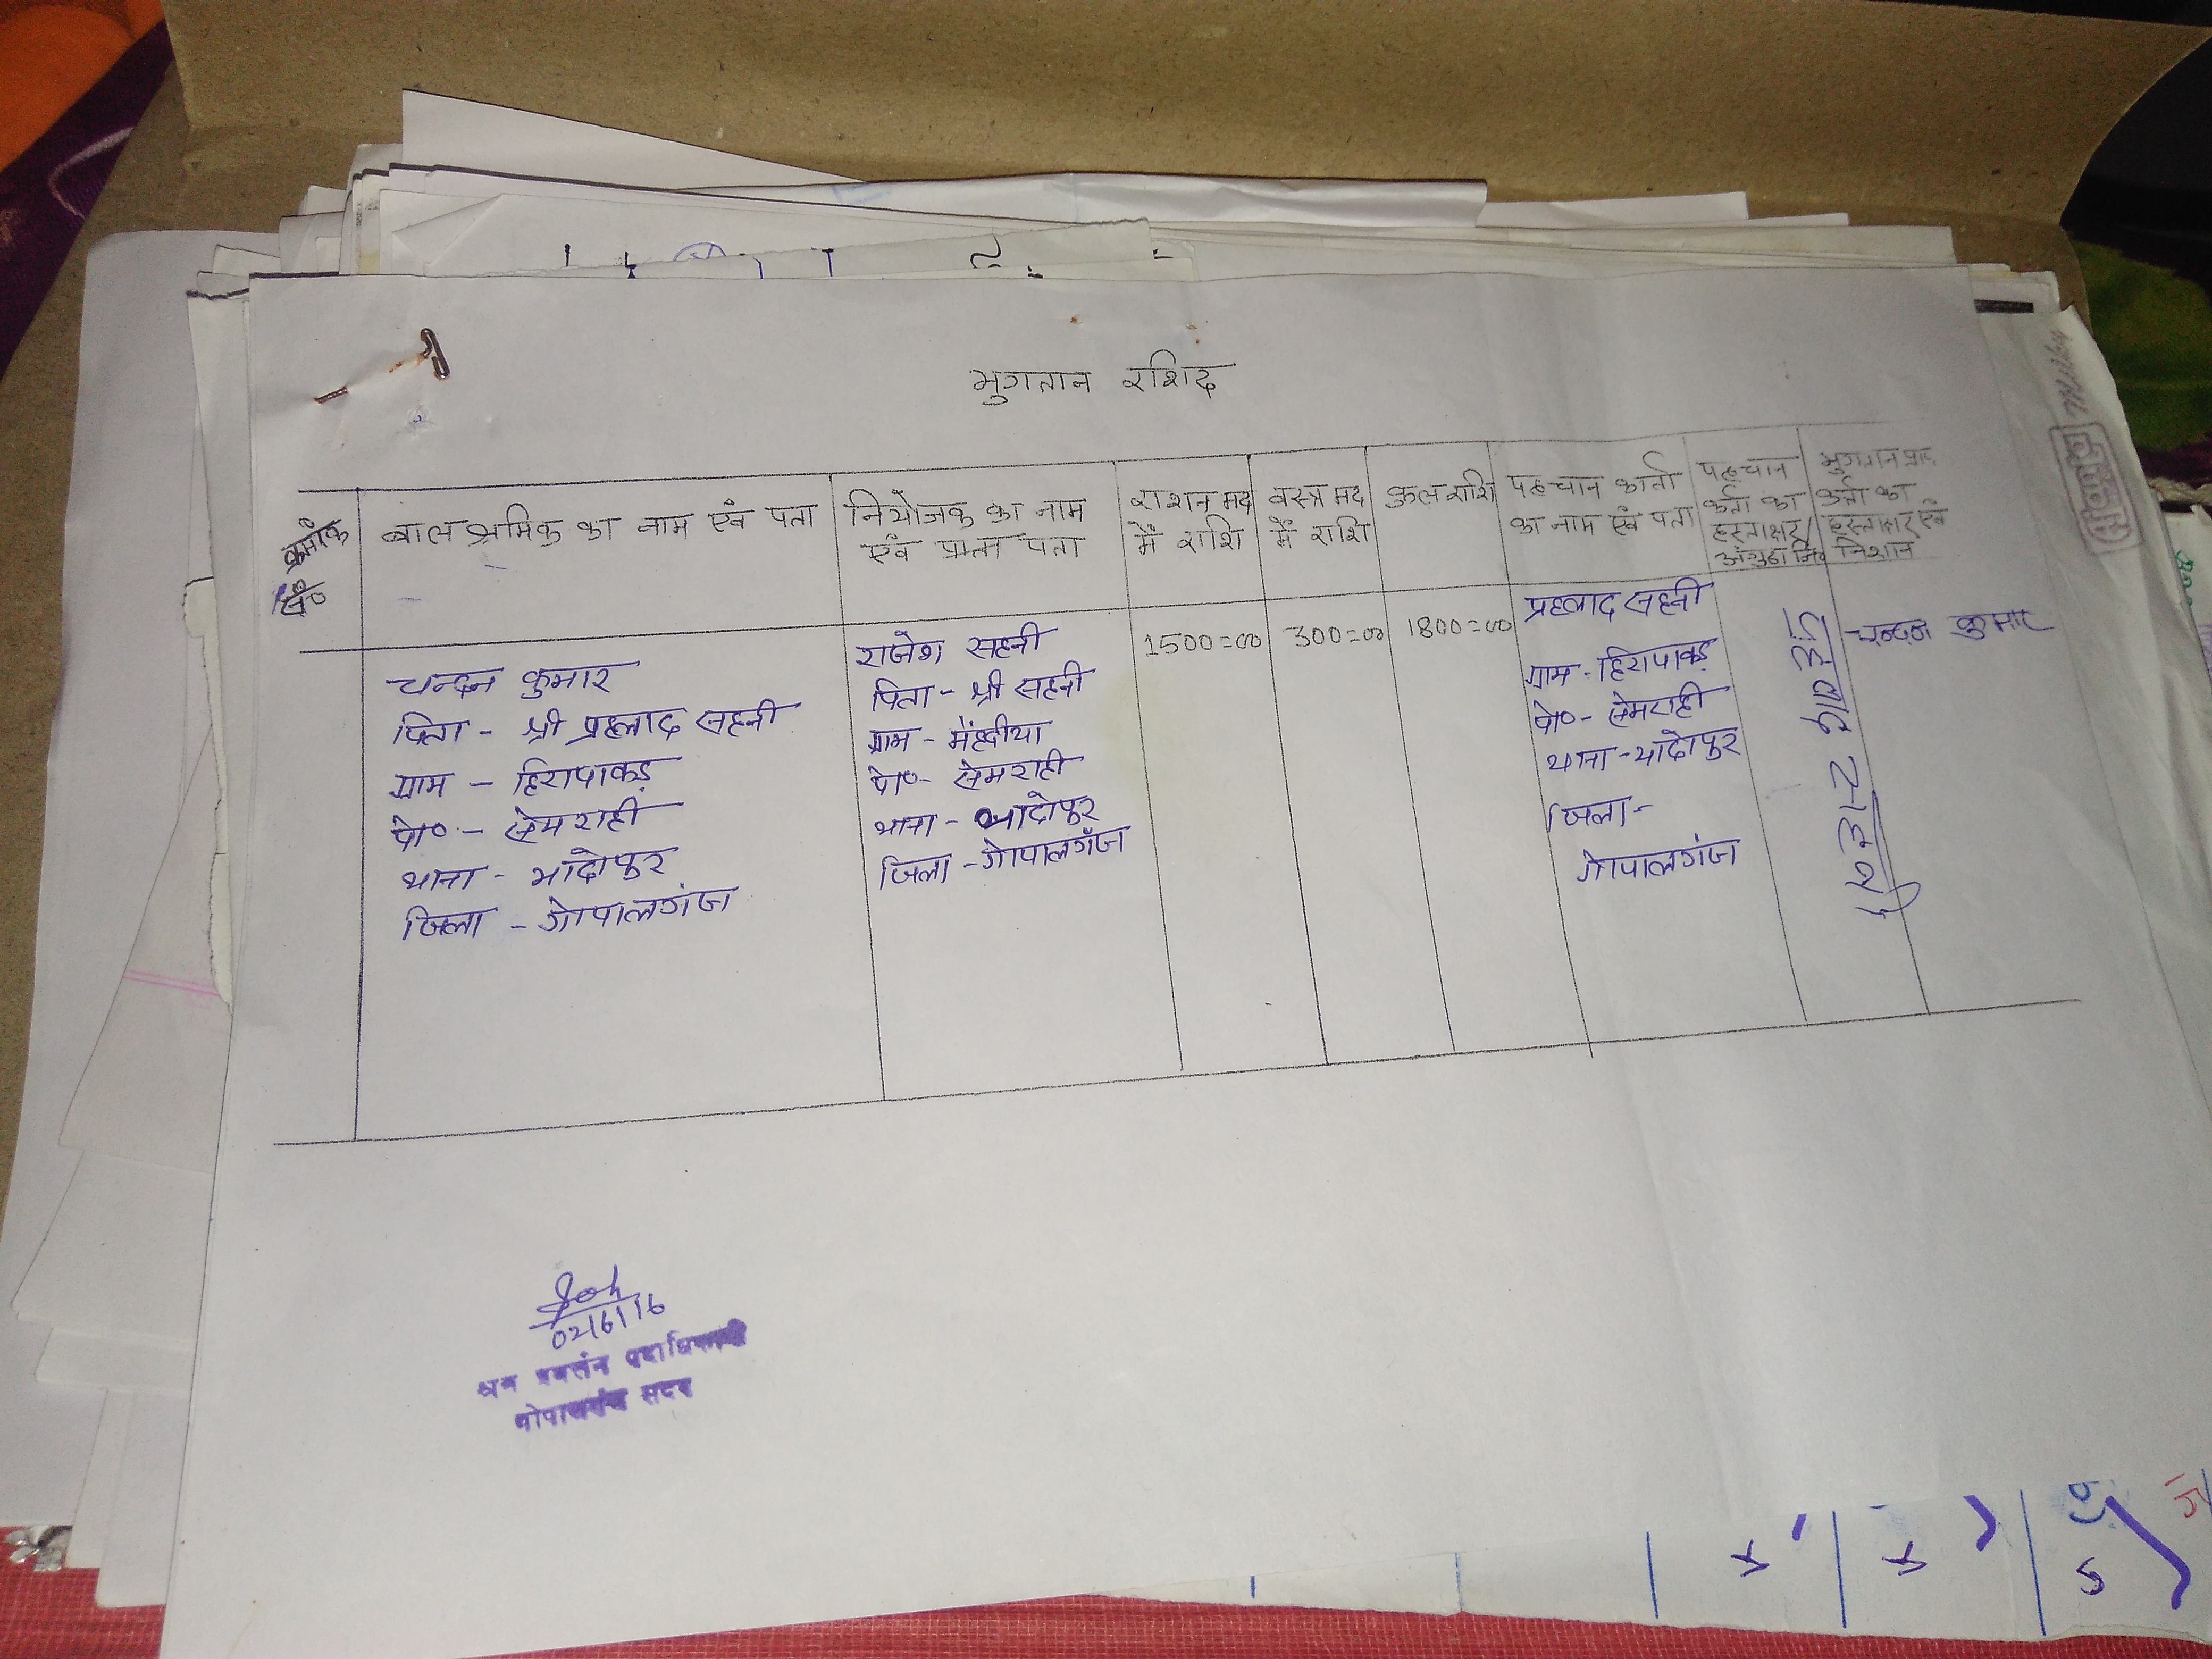 भुगतान रशिद
क्रमांक
सं०
बाल श्रमिक का नाम एवं पता
नियोजक का नाम
एवं प्राप्त पता
राशन मद
में राशि
वस्त्र मद
में राशि
कुल राशि
पहचान कर्ता
का नाम एवं पता
पहचान
कर्ता का
हस्ताक्षर/
अंगुठा नि०
भुगतान प्राप्त
कर्ता का
हस्ताक्षर एवं
निशान
चन्दन कुमार
पिता - श्री प्रहलाद सहनी
ग्राम - हिरापाकड़
पो० - सेमराही
थाना - भादोपुर
जिला - गोपालगंज
राजेश सहनी
पिता - श्री सहनी
ग्राम - मेंहदीया
पो० - सेमराही
थाना - भादोपुर
जिला - गोपालगंज
1500=00
300=00
1800=00
प्रहलाद सहनी
ग्राम - हिरापाकड़
पो० - सेमराही
थाना - भादोपुर
जिला -
गोपालगंज
चन्दन कुमार
02/6/16
श्रम प्रवर्तन पदाधिकारी
गोपालगंज सदर